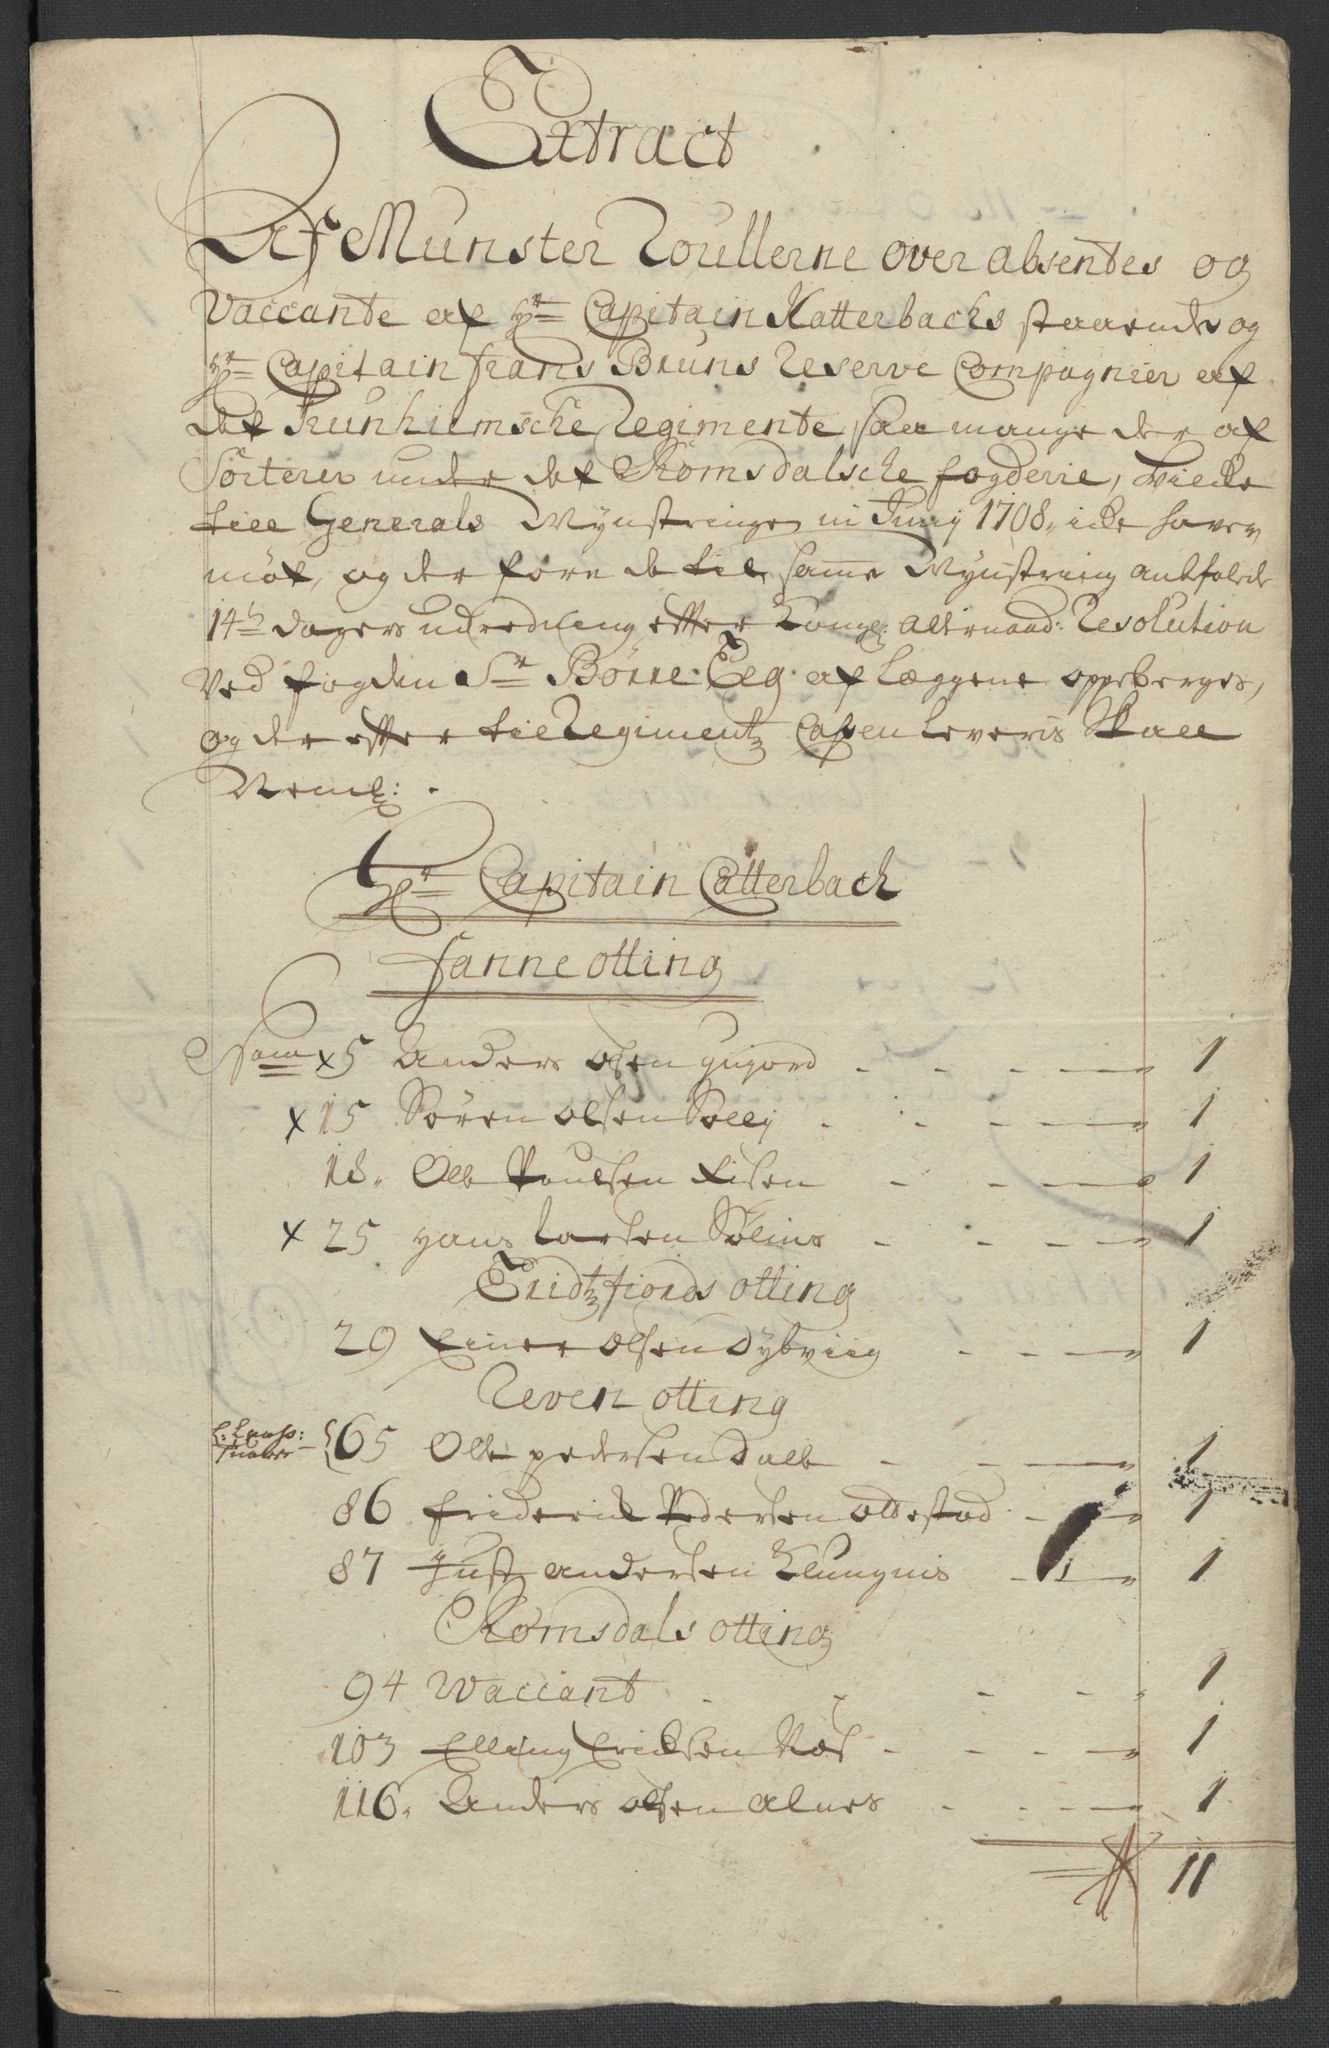 Extract
Af Munster Roullerne over absentes og
Vaccante af Hr Capitain Katterbachs staaende og
Hr Capitain frans Bruns Reserve Compagnier af
det Trunhiemsche Regimente, saa mange der af
Sorterer under det Romsdalsche fogderie, hvilcke
till Generals Mynstringen in Junij 1708, icke haver
møt, og der fore de til samme Mynstring anbefalede
14 dagers udredning efter Kongl: allernaad: Resolution
Ved fogden Sr Børre Eeg af læggene oppeberges,
og der efter til Regimentz Cassen leveris skall
Neml:
Hr Capitain Catterbach
fanne otting
No x 5 Anders olsen gujord - - - - 1
x 15 Søren olsen Solli - - - 1
18, Ole Poulsen - - - 1
x 25 hans larsen - - - - 1
Eridtzfiords otting
29 Einer olsen dybviig - - - 1
Reven otting
65 Ole pedersen dale - - - 1
86 friderick Pedersen oldestad - - 1
87 Just andersen Klungnis - - 1
Romsdals otting
94 Vaccant - - - - 1
103 Elling Ericksen Næs - - - - 1
116, Anders olsen alnes - - - - 1
11